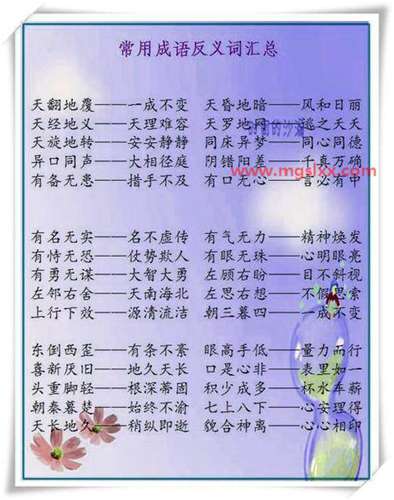 常用成语反义词汇总
天翻地覆——一成不变 天昏地暗——风和日丽
天经地义——天理难容 天罗地网——逃之夭夭
天旋地转——安安静静 同床异梦——同心同德
异口同声——大相径庭 阴错阳差——千真万确
www.mgslxx.com
有备无患——措手不及 有口无心——言必有中
有名无实——名不虚传 有气无力——精神焕发
有恃无恐——仗势欺人 有眼无珠——心明眼亮
有勇无谋——大智大勇 左顾右盼——目不斜视
左邻右舍——天南海北 左思右想——不假思索
上行下效——源清流洁 朝三暮四——一成不变
东倒西歪——有条不紊 眼高手低——量力而行
喜新厌旧——地久天长 口是心非——表里如一
头重脚轻——根深蒂固 积少成多——杯水车薪
朝秦暮楚——始终不渝 七上八下——心安理得
天长地久——稍纵即逝 貌合神离——心心相印